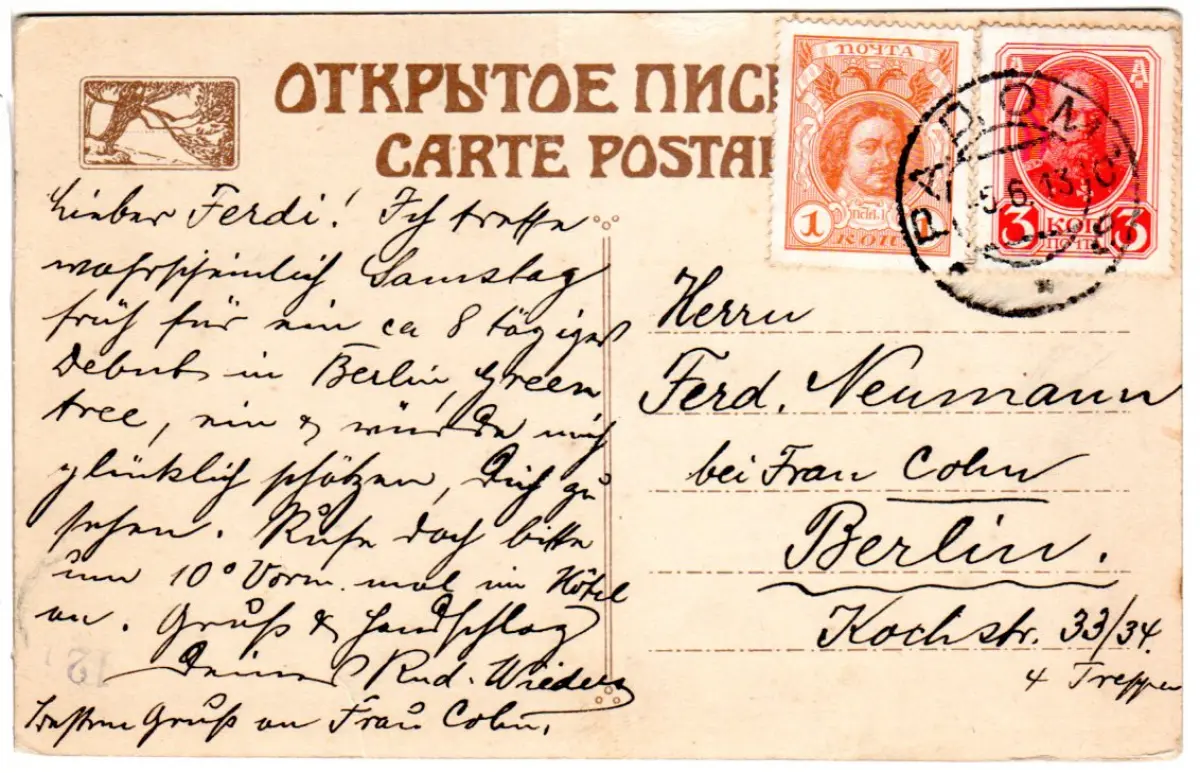 ОТКРЫТОЕ ПИС
CARTE POSTA
ПОЧТА
1
КОП
3
3
КОП
ПОЧТ
РАДОМ
5.6.13.10
Lieber Ferdi! Ich treffe
wahrscheinlich Samstag
früh für ein ca 8 tägiges
Debut in Berlin, Green
tree, ein & würde mich
glücklich schätzen, Dich zu
sehen. Rufe doch bitte
um 10° Vorm. mal im Hôtel
an. Gruß & Handschlag
Deines Rud. Wieders
Besten Gruß an Frau Cohn.
Herrn
Ferd. Neumann
bei Frau Cohn
Berlin.
Kochstr. 33/34.
4 Treppen
12